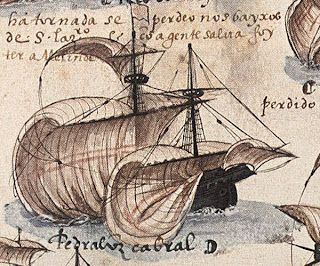 ha tornada se perdeo nos bayxos
de S. Laz.ro e a gente salva foy
ter a Melinde
perdido
Pedralvz cabral D